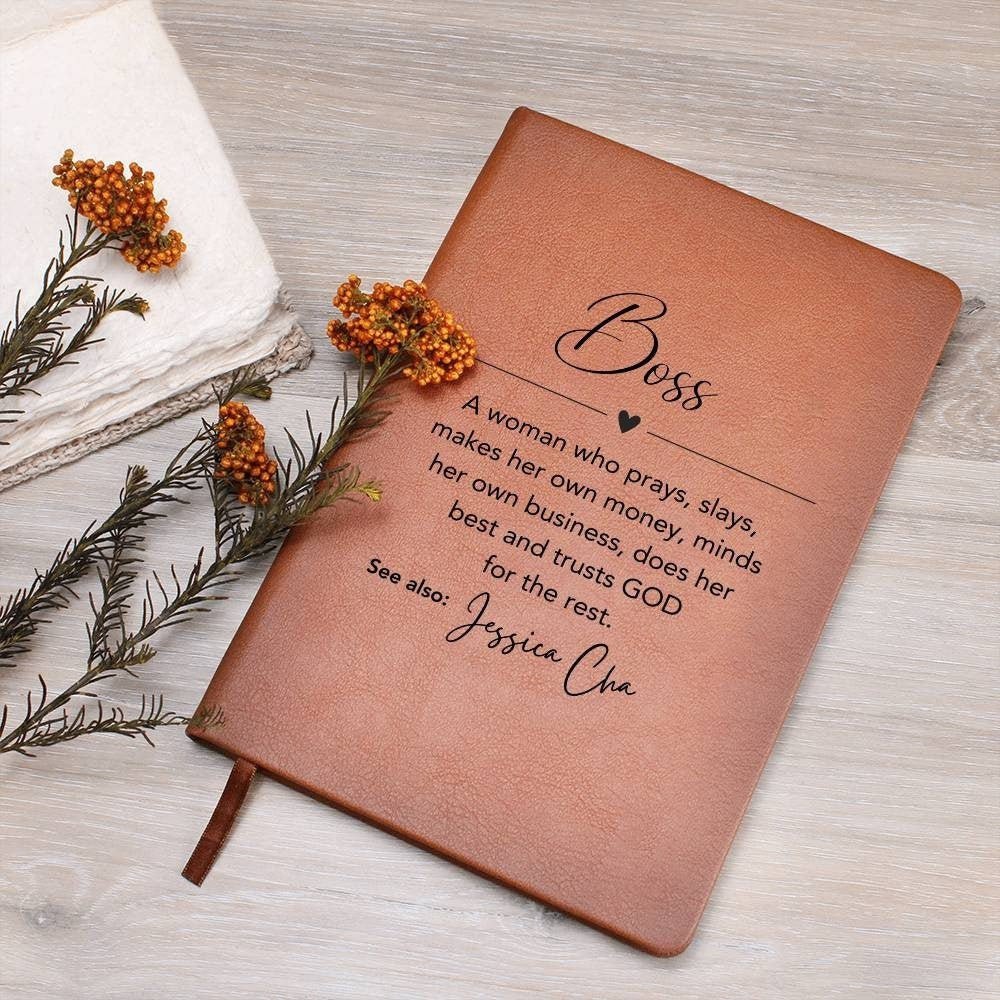 Boss
A woman who prays, slays,
makes her own money, minds
her own business, does her
best and trusts GOD
for the rest.
See also: Jessica Cha